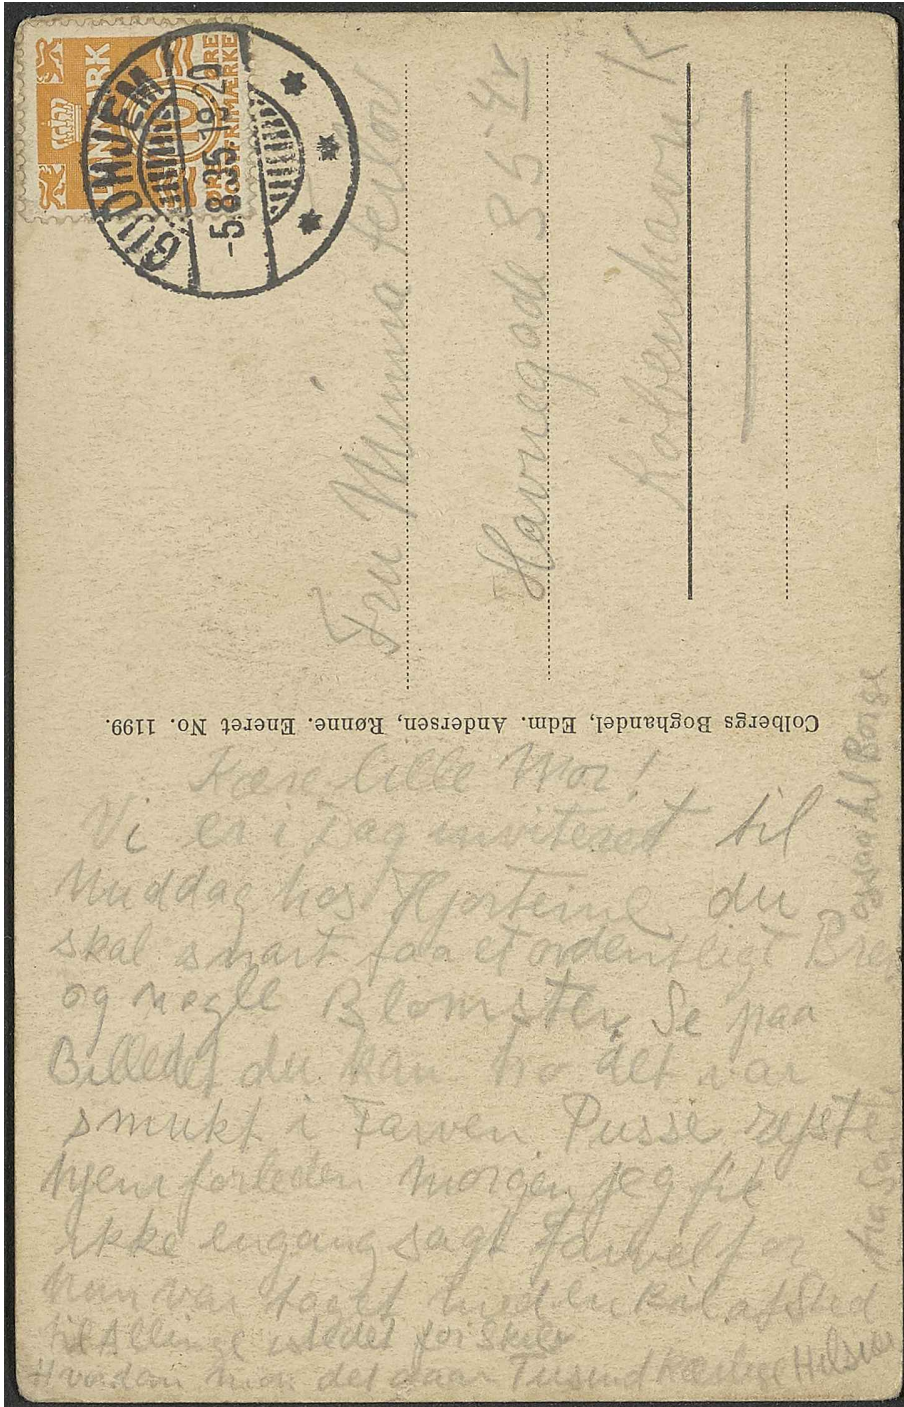 DANMARK
10
ØRE
FRIMÆRKE
GUDHJEM
-5.8.35.18-20
Fru Minna
Havnegade 35 4v
København K
Colbergs Boghandel, Edm. Andersen, Rønne. Eneret No. 1199.
Kære lille Mor!
Vi er i Dag inviteret til
Middag hos du
skal snart faa et ordentligt Brev
og nogle Blomster. Se paa
Billedet du kan tro det var
smukt i Farven Pusse rejste
hjem forleden Morgen jeg fik
ikke engang sagt farvel for
hun var taget med en Bil afsted
til Allinge istedet for
Hvordan mon det gaar Tusind kærlige Hilsner
fra
ogsaa til Børge